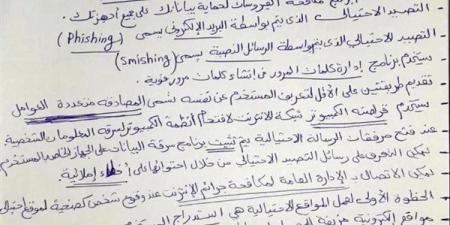 برنامج مكافحة الفيروسات لحماية بياناتك على جميع أجهزتك.
- التصيد الاحتيالي الذي يتم بواسطة البريد الإلكتروني يسمى (Phishing)
- التصيد الاحتيالي الذي يتم بواسطة الرسائل النصية يسمى (Smishing)
- يستخدم برنامج إدارة كلمات المرور في إنشاء كلمات مرور قوية.
- تقديم طريقتين على الأقل لتعريف المستخدم عن نفسه تسمى المصادقة متعددة العوامل
- يستخدم قراصنة الكمبيوتر شبكة الانترنت لاقتحام أنظمة الكمبيوتر لسرقة المعلومات الشخصية
عند فتح مرفقات الرسالة الاحتيالية يتم تثبيت برنامج سرقة البيانات على الجهاز الخاص بالمستخدم
يمكن التعرف على رسائل التصيد الاحتيالي من خلال احتوائها على أخطاء إملائية
يمكن الاتصال بـ الإدارة العامة لمكافحة جرائم الإنترنت عند وقوع شخص كضحية لموقع احتيالي
الخطوة الأولى لعمل المواقع الاحتيالية هي استدراج
مواقع إلكترونية مزيفة